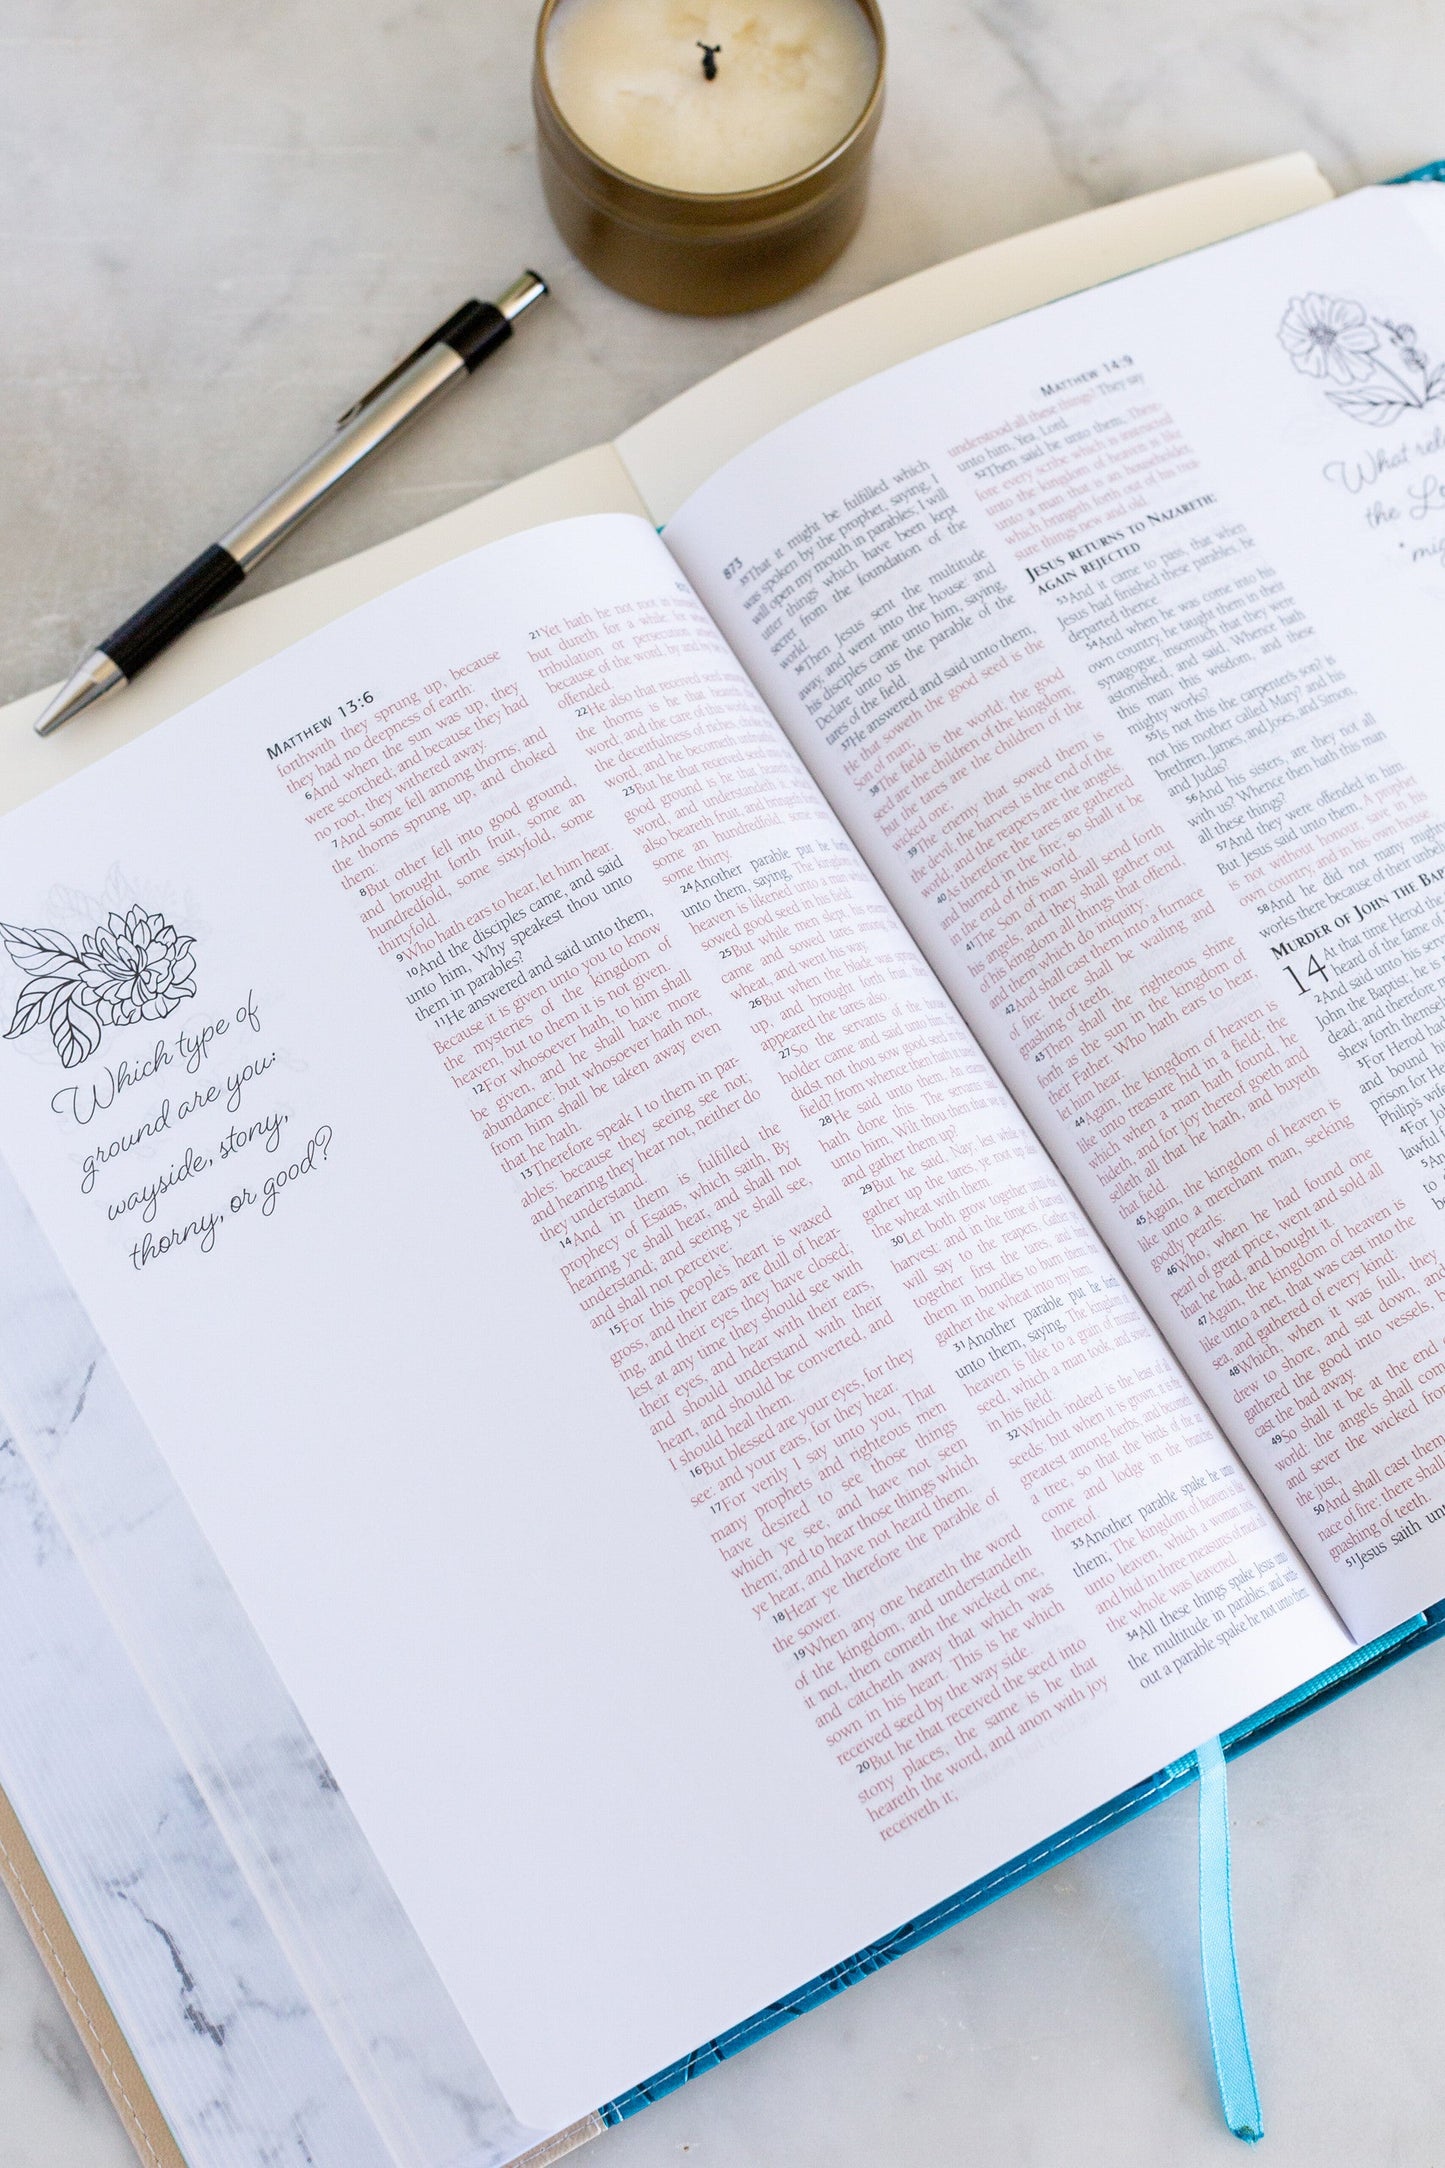 MATTHEW 13:6
forthwith they sprung up, because
they had no deepness of earth:
6And when the sun was up, they
were scorched; and because they had
no root, they withered away.
7And some fell among thorns; and
the thorns sprung up, and choked
them:
8But other fell into good ground,
and brought forth fruit, some an
hundredfold, some sixtyfold, some
thirtyfold.
9Who hath ears to hear, let him hear.
10And the disciples came, and said
unto him, Why speakest thou unto
them in parables?
11He answered and said unto them,
Because it is given unto you to know
the mysteries of the kingdom of
heaven, but to them it is not given.
12For whosoever hath, to him shall
be given, and he shall have more
abundance: but whosoever hath not,
from him shall be taken away even
that he hath.
13Therefore speak I to them in par-
ables: because they seeing see not;
and hearing they hear not, neither do
they understand.
14And in them is fulfilled the
prophecy of Esaias, which saith, By
hearing ye shall hear, and shall not
understand; and seeing ye shall see,
and shall not perceive:
15For this people's heart is waxed
gross, and their ears are dull of hear-
ing, and their eyes they have closed;
lest at any time they should see with
their eyes, and hear with their ears,
and should understand with their
heart, and should be converted, and
I should heal them.
16But blessed are your eyes, for they
see: and your ears, for they hear.
17For verily I say unto you, That
many prophets and righteous men
have desired to see those things
which ye see, and have not seen
them; and to hear those things which
ye hear, and have not heard them.
18Hear ye therefore the parable of
the sower.
19When any one heareth the word
of the kingdom, and understandeth
it not, then cometh the wicked one,
and catcheth away that which was
sown in his heart. This is he which
received seed by the way side.
20But he that received the seed into
stony places, the same is he that
heareth the word, and anon with joy
receiveth it;
21Yet hath he not root in
but dureth for a while: for
tribulation or persecution
because of the word, by and by
offended.
22He also that received seed
the thorns is he that heareth the
word; and the care of this world, and
the deceitfulness of riches, choke the
word, and he becometh unfruitful.
23But he that received seed into
good ground is he that heareth the
word, and understandeth it; which
also beareth fruit, and bringeth forth,
some an hundredfold, some sixty,
some thirty.
24Another parable put he forth
unto them, saying, The kingdom of
heaven is likened unto a man which
sowed good seed in his field:
25But while men slept, his enemy
came and sowed tares among the
wheat, and went his way.
26But when the blade was sprung
up, and brought forth fruit, then
appeared the tares also.
27So the servants of the house-
holder came and said unto him, Sir,
didst not thou sow good seed in thy
field? from whence then hath it tares?
28He said unto them, An enemy
hath done this. The servants said
unto him, Wilt thou then that we go
and gather them up?
29But he said, Nay; lest while ye
gather up the tares, ye root up also
the wheat with them.
30Let both grow together until the
harvest: and in the time of harvest I
will say to the reapers, Gather ye
together first the tares, and bind
them in bundles to burn them: but
gather the wheat into my barn.
31Another parable put he forth
unto them, saying, The kingdom of
heaven is like to a grain of mustard
seed, which a man took, and sowed
in his field:
32Which indeed is the least of all
seeds: but when it is grown, it is the
greatest among herbs, and becometh
a tree, so that the birds of the air
come and lodge in the branches
thereof.
33Another parable spake he unto
them; The kingdom of heaven is like
unto leaven, which a woman took,
and hid in three measures of meal, till
the whole was leavened.
34All these things spake Jesus unto
the multitude in parables; and with-
out a parable spake he not unto them:
Which type of
ground are you:
wayside, stony,
thorny, or good?
873
MATTHEW 14:9
35That it might be fulfilled which
was spoken by the prophet, saying, I
will open my mouth in parables; I will
utter things which have been kept
secret from the foundation of the
world.
36Then Jesus sent the multitude
away, and went into the house: and
his disciples came unto him, saying,
Declare unto us the parable of the
tares of the field.
37He answered and said unto them,
He that soweth the good seed is the
Son of man;
38The field is the world; the good
seed are the children of the kingdom;
but the tares are the children of the
wicked one;
39The enemy that sowed them is
the devil; the harvest is the end of the
world; and the reapers are the angels.
40As therefore the tares are gathered
and burned in the fire; so shall it be
in the end of this world.
41The Son of man shall send forth
his angels, and they shall gather out
of his kingdom all things that offend,
and them which do iniquity;
42And shall cast them into a furnace
of fire: there shall be wailing and
gnashing of teeth.
43Then shall the righteous shine
forth as the sun in the kingdom of
their Father. Who hath ears to hear,
let him hear.
44Again, the kingdom of heaven is
like unto treasure hid in a field; the
which when a man hath found, he
hideth, and for joy thereof goeth and
selleth all that he hath, and buyeth
that field.
45Again, the kingdom of heaven is
like unto a merchant man, seeking
goodly pearls:
46Who, when he had found one
pearl of great price, went and sold all
that he had, and bought it.
47Again, the kingdom of heaven is
like unto a net, that was cast into the
sea, and gathered of every kind:
48Which, when it was full, they
drew to shore, and sat down, and
gathered the good into vessels, but
cast the bad away.
49So shall it be at the end of
world: the angels shall come
and sever the wicked from
the just,
50And shall cast them
nace of fire: there shall
gnashing of teeth.
51Jesus saith unto
understood all these things? They say
unto him, Yea, Lord.
52Then said he unto them, There-
fore every scribe which is instructed
unto the kingdom of heaven is like
unto a man that is an householder,
which bringeth forth out of his trea-
sure things new and old.
JESUS RETURNS TO NAZARETH;
AGAIN REJECTED
53And it came to pass, that when
Jesus had finished these parables, he
departed thence.
54And when he was come into his
own country, he taught them in their
synagogue, insomuch that they were
astonished, and said, Whence hath
this man this wisdom, and these
mighty works?
55Is not this the carpenter's son? is
not his mother called Mary? and his
brethren, James, and Joses, and Simon,
and Judas?
56And his sisters, are they not all
with us? Whence then hath this man
all these things?
57And they were offended in him.
But Jesus said unto them, A prophet
is not without honour, save in his
own country, and in his own house.
58And he did not many mighty
works there because of their unbelief.
MURDER OF JOHN THE BAP
14 At that time Herod the
heard of the fame of
2And said unto his
John the Baptist; he is
dead; and therefore
shew forth themselves
3For Herod had
and bound
prison for
Philip's wife
4For
lawful
5And
to
What
the